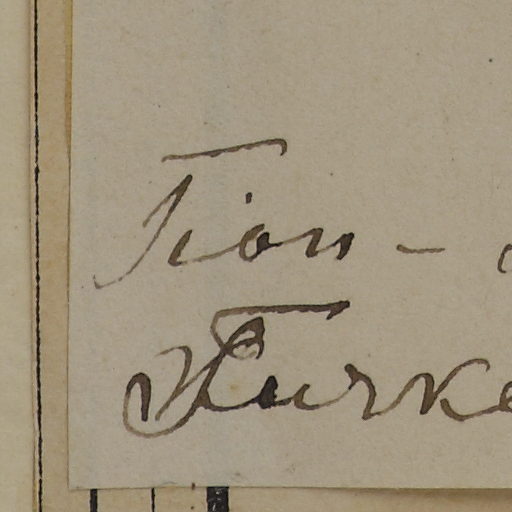 Tion -
Turke